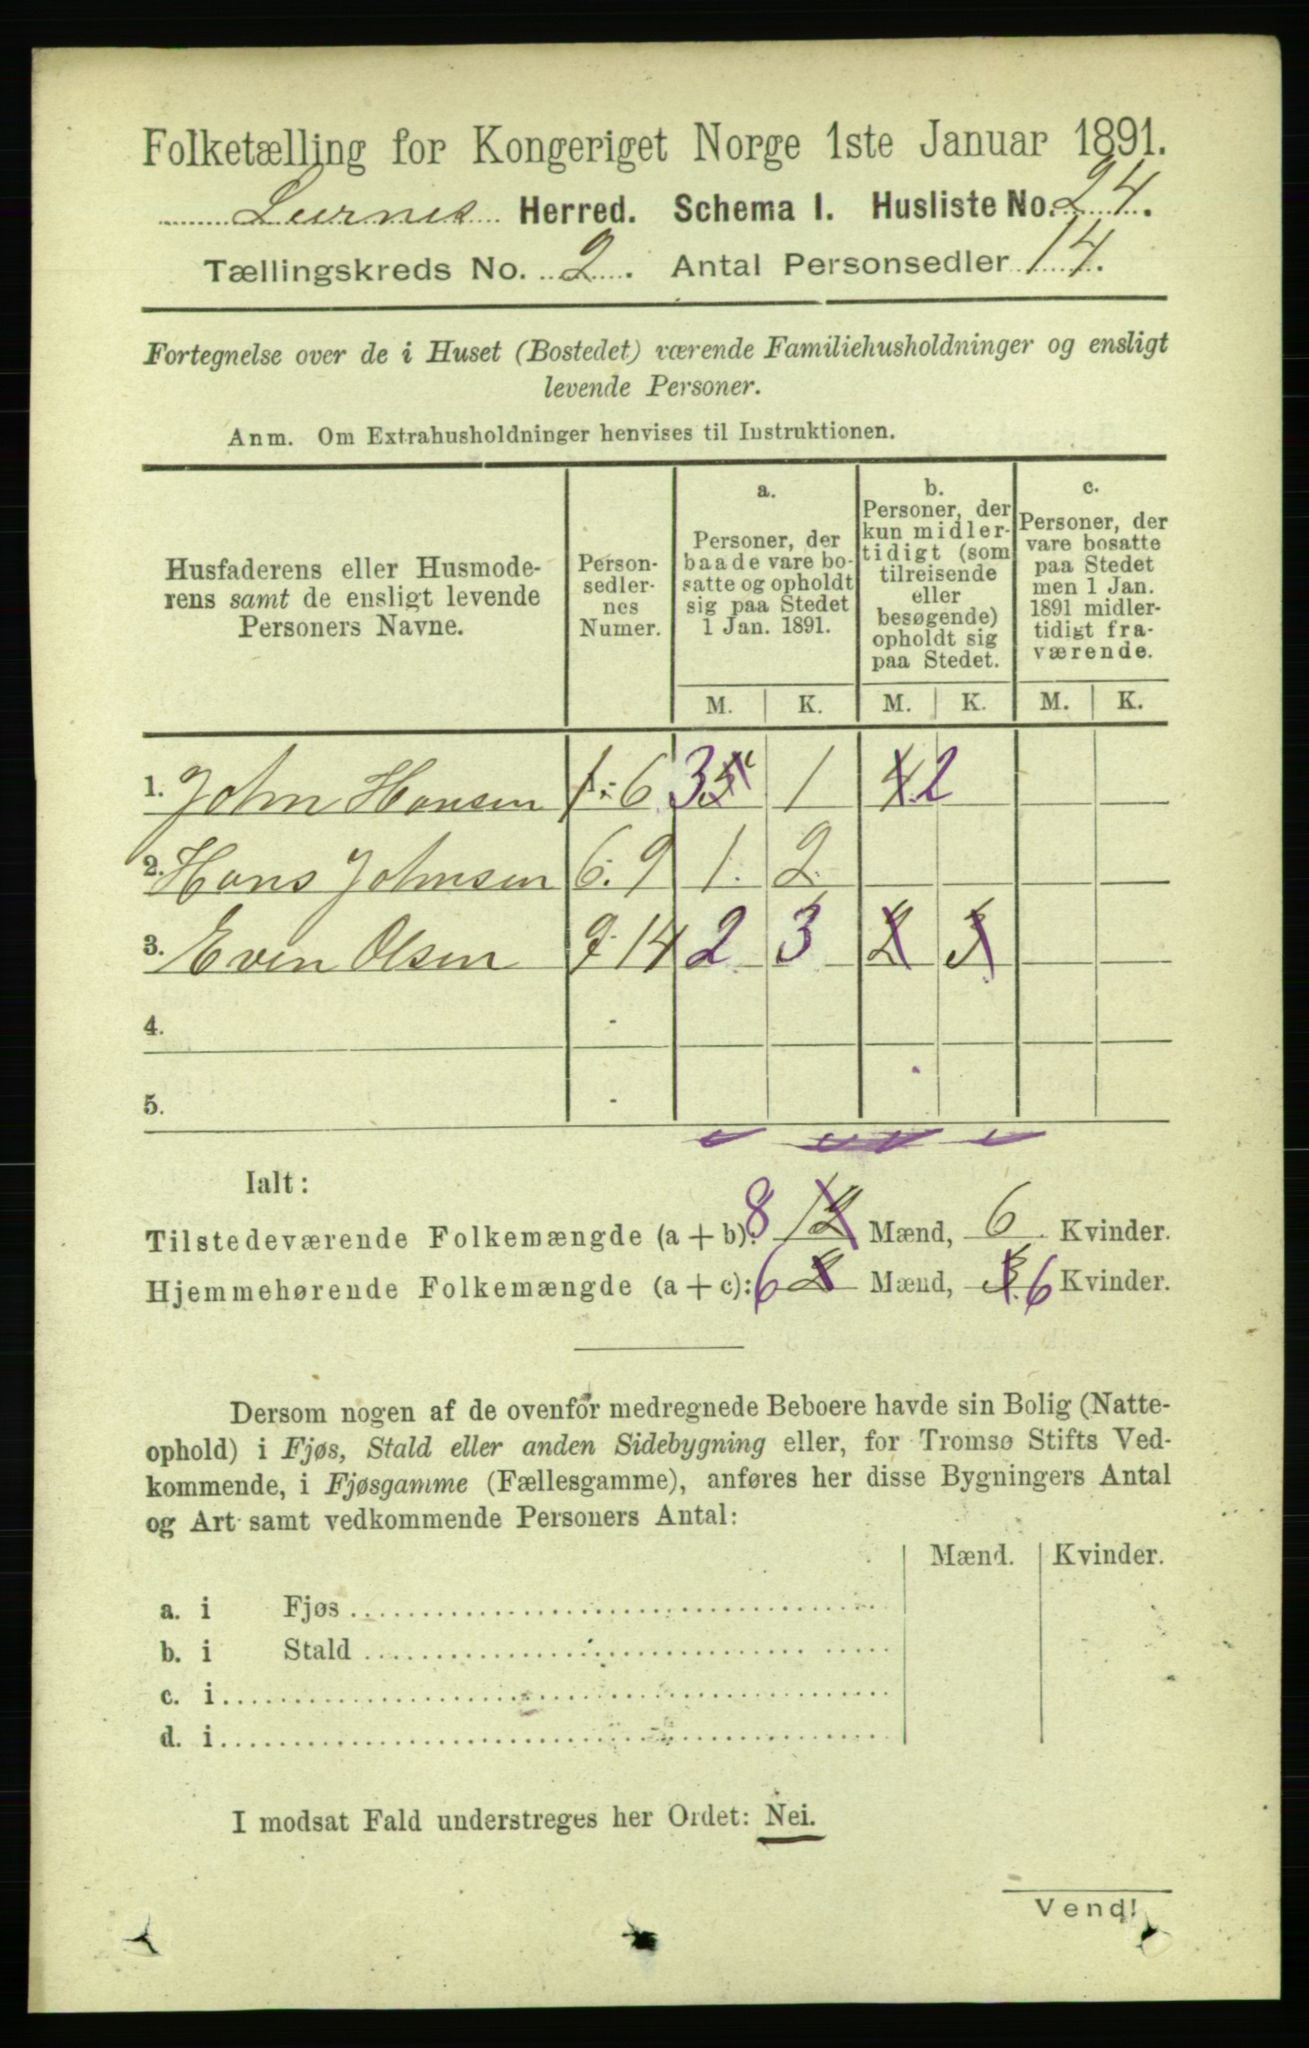 Folketælling for Kongeriget Norge 1ste Januar 1891.
Herred. Schema I. Husliste No. 24.
Tællingskreds No. 2. Antal Personsedler 14.
Fortegnelse over de i Huset (Bostedet) værende Familiehusholdninger og ensligt
levende Personer.
Anm. Om Extrahusholdninger henvises til Instruktionen.
Husfaderens eller Husmode-
rens samt de ensligt levende
Personers Navne.
Person-
sedler-
nes
Numer.
a.
Personer, der
baade vare bo-
satte og opholdt
sig paa Stedet
1 Jan. 1891.
b.
Personer, der
kun midler-
tidigt (som
tilreisende
eller
besøgende)
opholdt sig
paa Stedet.
c.
Personer, der
vare bosatte
paa Stedet
men 1 Jan.
1891 midler-
tidigt fra-
værende.
M. K. M. K. M. K.
1. John Hansen 1-6 3 1 2
2. Hans Johnsen 6-9 1. 2.
3. Even Olsen 9-14 2 3
4. -
5. -
Ialt:
Tilstedeværende Folkemængde (a + b): 8 12 Mænd, 6 Kvinder.
Hjemmehørende Folkemængde (a + c): 6 Mænd, 6 Kvinder.
Dersom nogen af de ovenfor medregnede Beboere havde sin Bolig (Natte-
ophold) i Fjøs, Stald eller anden Sidebygning eller, for Tromsø Stifts Ved-
kommende, i Fjøsgamme (Fællesgamme), anføres her disse Bygningers Antal
og Art samt vedkommende Personers Antal:
Mænd. Kvinder.
a. i Fjøs
b. i Stald
c. i
d. i
I modsat Fald understreges her Ordet: Nei.
Vend!